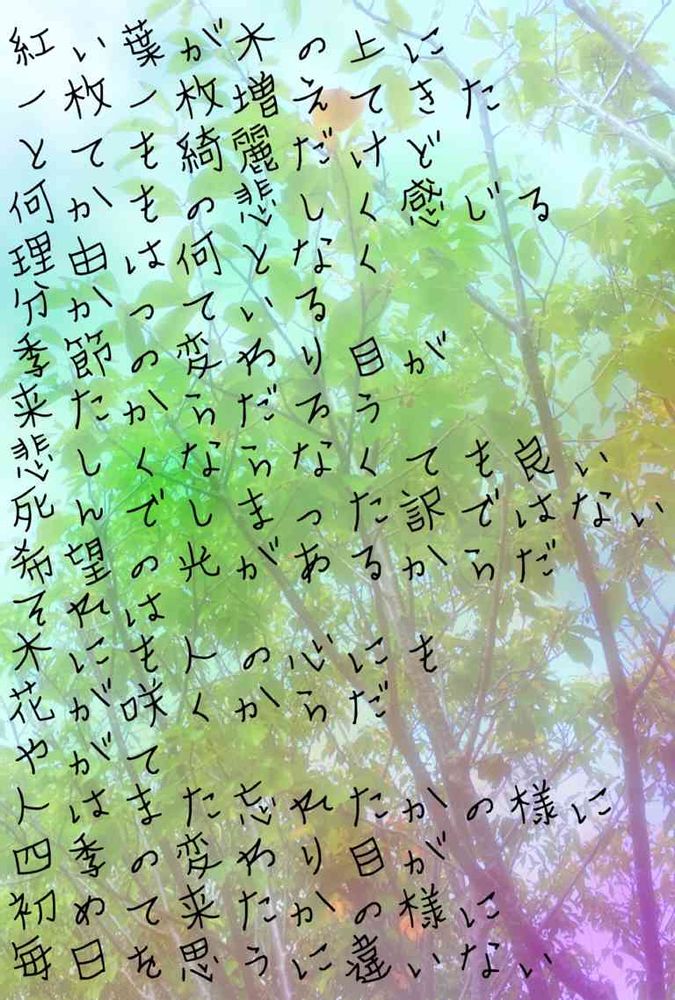 紅い葉が木の上に
一枚一枚増えてきた
とても綺麗だけど
何かもの悲しく感じる
理由は何となく
分かっている
季節の変わり目が
来たのからだろう
悲しくならなくても良い
死んでしまった訳ではない
希望の光があるからだ
それは
木にも人の心にも
花が咲くからだ
やがて
人はまた忘れたかの様に
四季の変わり目が
初めて来たかの様に
毎日を思うに違いない